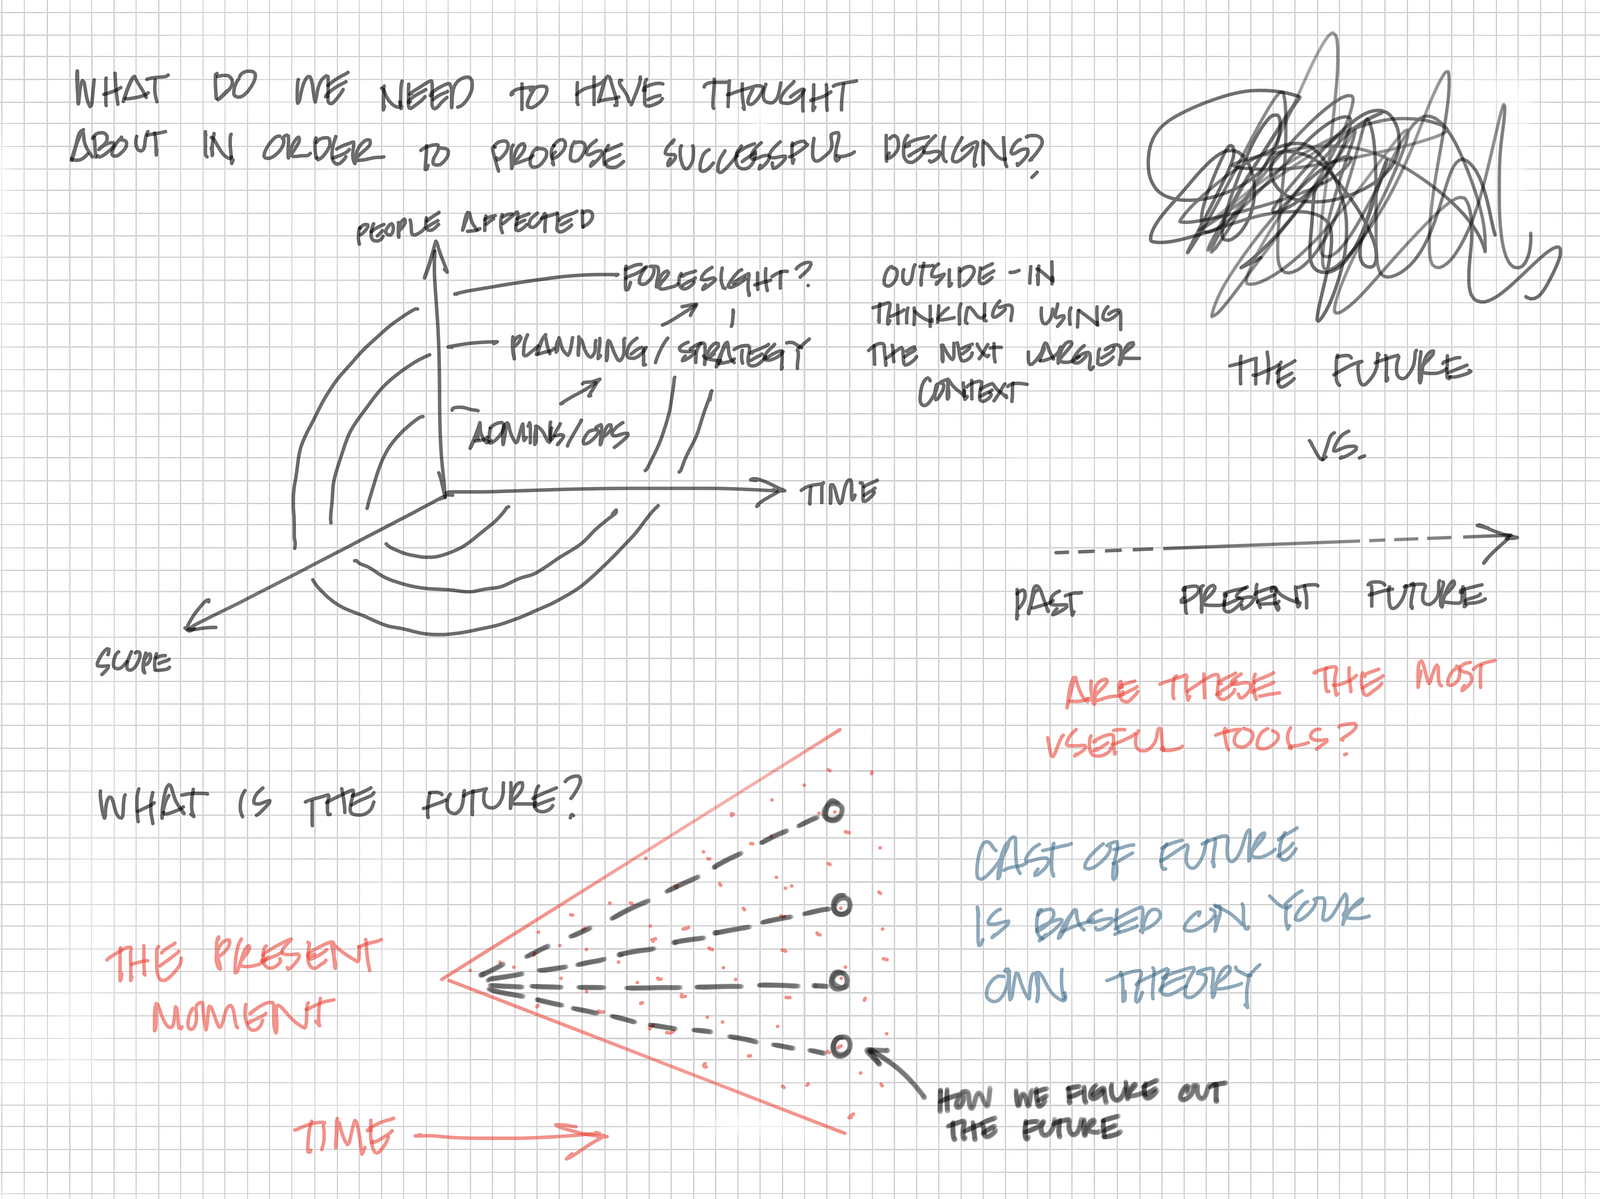 WHAT DO WE NEED TO HAVE THOUGHT
ABOUT IN ORDER TO PROPOSE SUCCESSFUL DESIGNS?
PEOPLE AFFECTED
FORESIGHT?
PLANNING/STRATEGY
ADMINS/OPS
TIME
SCOPE
OUTSIDE-IN
THINKING USING
THE NEXT LARGER
CONTEXT
THE FUTURE
VS.
PAST PRESENT FUTURE
ARE THESE THE MOST
USEFUL TOOLS?
WHAT IS THE FUTURE?
THE PRESENT
MOMENT
TIME
CAST OF FUTURE
IS BASED ON YOUR
OWN THEORY
HOW WE FIGURE OUT
THE FUTURE